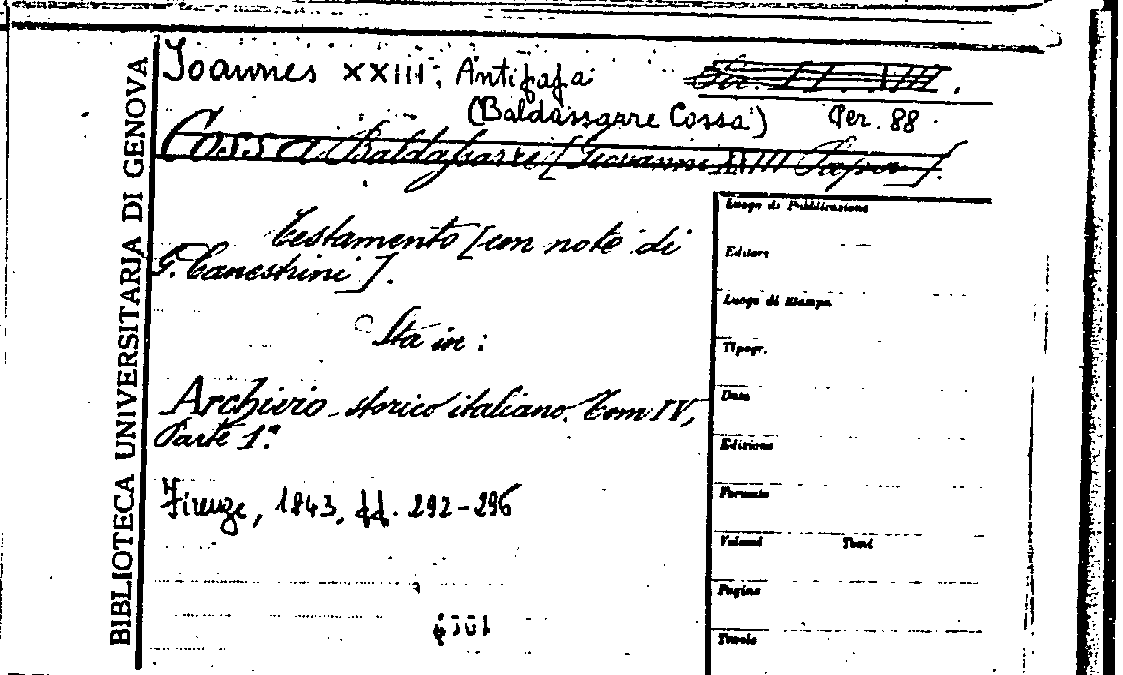 BIBLIOTECA UNIVERSITARIA DI GENOVA
Joannes XXIII, Antipapa
(Baldassarre Cossa) Per. 88
Cossa Baldassarre [Giovanni XXIII Papa].
Testamento [con note di
G. Canestrini].
Sta in:
Archivio storico italiano. Tom IV,
Parte 1ª
Firenze, 1843, pp. 292-296
Luogo di Pubblicazione
Editore
Luogo di Stampa
Tipogr.
Data
Edizione
Formato
Volumi Tomi
Pagine
Tavole